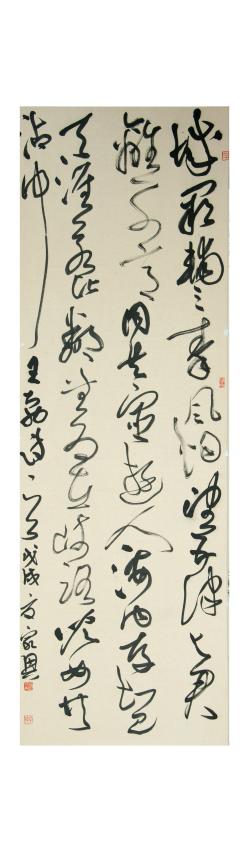 城闕輔三秦風烟望五津与君
離别意同是宦遊人海内存知己
天涯若比鄰無为在歧路児女共
沾巾 王勃诗一首 戊戌方家興